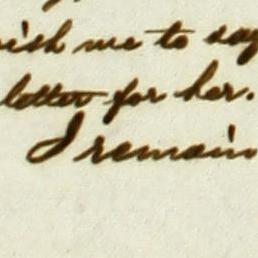 wish me to say
letter for her.
I remain